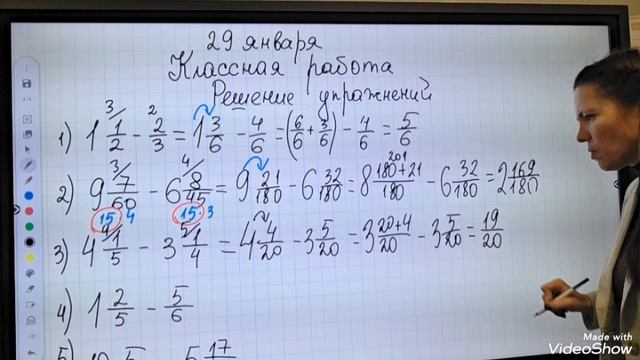 29 января
Классная работа
Решение упражнений
1) 1 3/ 1/2 - 2 2/3 = 1 3/6 - 4/6 = (6/6 + 3/6) - 4/6 = 5/6
2) 9 3/ 7/60 - 6 4/ 8/45 = 9 21/180 - 6 32/180 = 8 180+21/180 201 - 6 32/180 = 2 169/180
15 4 15·3
3) 4 4/ 1/5 - 3 5/ 1/4 = 4 4/20 - 3 5/20 = 3 20+4/20 - 3 5/20 = 19/20
4) 1 2/5 - 5/6
5) 17
Made with
VideoShow